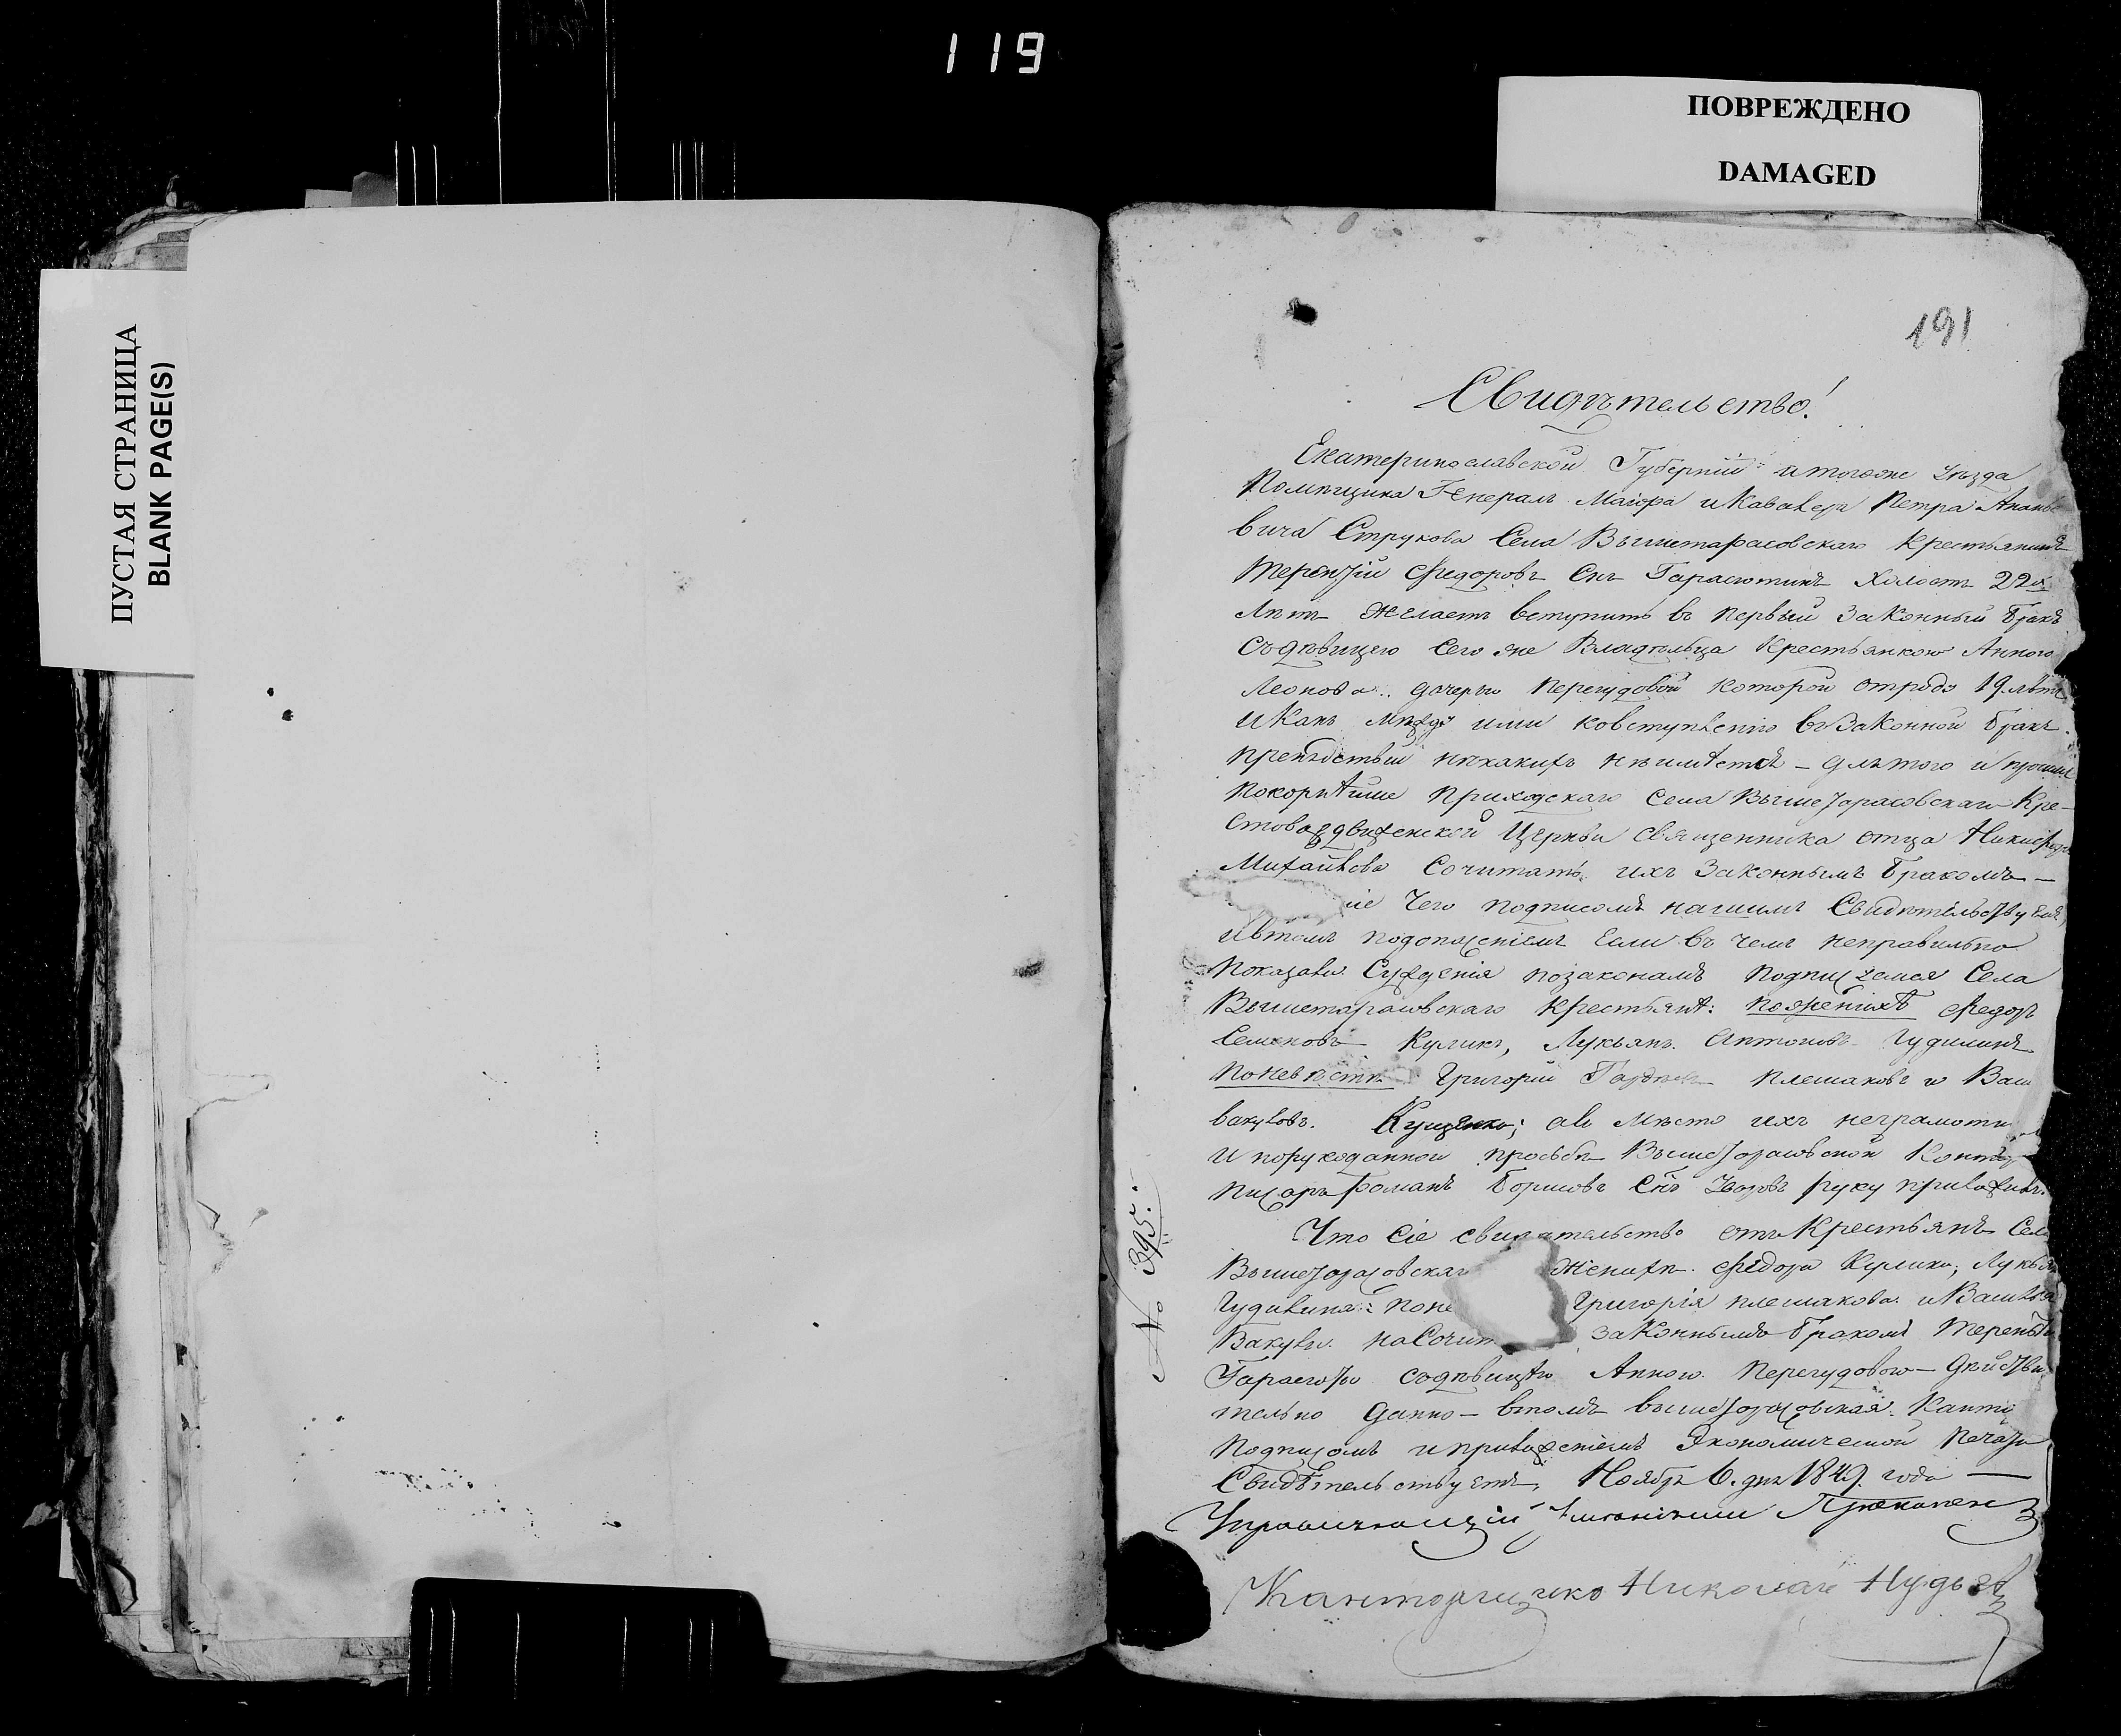 119
ПОВРЕЖДЕНО
DAMAGED
ПУСТАЯ СТРАНИЦА
BLANK PAGE(S)
191
Свидѣтельство!
Екатеринославской Губерніи и тогоже уѣзда
Помѣщика Генералъ Маіора и Кавалера Петра Ананье
вича Струкова Села Вышетарасовскаго Крестьянинъ
Терентій Федоровъ Снъ Гарасютинъ Холостъ 22х
Лѣтъ Желаетъ вступить въ первый Законный бракъ
Съдѣвицею Сего же Владѣльца Крестьянкою Анною
Леонова дочерью Перегудовой которой отроду 19 лѣтъ
И Какъ между ими ковступленію въ Законной бракъ
препядствій никакихъ неимѣетсѣ – длѣтого и просимъ
покорнѣише приходскаго Села Вышетарасовскаго Кре-
стовоздвиженской Церкви священника отца Никифора
Михайлова Сочитать ихъ Законнымъ бракомъ –
ніе Чего подписомъ нашимъ Свидѣтельствуемъ,
ивтомъ подопасеніемъ Если въ чемъ неправильно
показали Сужденія позаконамъ подписуемся Села
Вышетарасовскаго Крестьянѣ: поженихѣ Федоръ
Семеновъ Куликъ, Лукьянъ Антоновъ Гудилинъ
Поневѣстѣ Григорій Плешаковъ и Васи
вакуловъ. Кущенко; ав Мѣсто ихъ неграмотн
И порукоданной прозьбѣ Вышетарасовской Конто
писарь Романъ Борисовъ Снъ руку приложилъ.
Что Сіе свидѣтельство отъ Крестьянъ Села
Вышетарасовскаг Женихѣ Федора Кулика, Лукья
Гудилина: поне Григорія плешакова и Василья
Вакулы. наСочит законнымъ бракомъ Терентія
Гарасюты съдѣвицею Анною Перегудовою – дѣйстви
тельно данно – втомъ вышетарасовская Канто
подписомъ и приложеніемъ Экономической печати
Свидѣтельствуетъ. Ноября 6. дня 1849. года —
Управляющій Имѣніями
Канторщико Николай
№ 395.